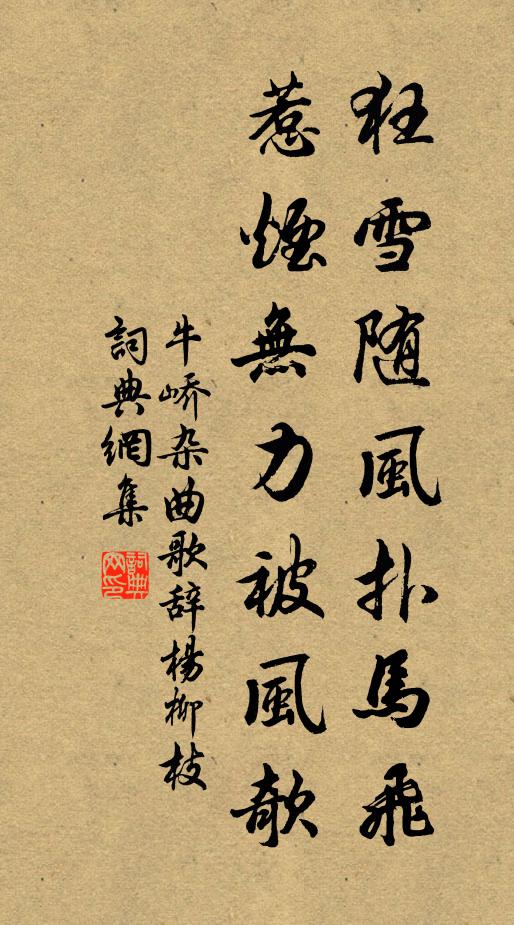 狂雪随風扑馬飛
惹煙無力被風欹
牛峤杂曲歌辞楊柳枝
詞典網集
詞典
网印